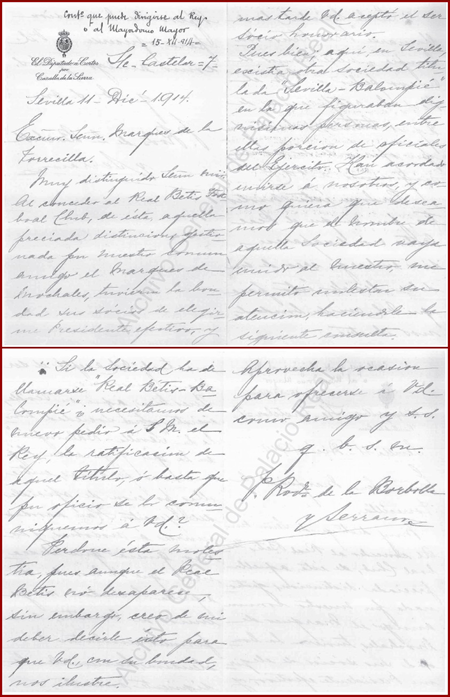 Contº que puede dirigirse al Rey
ó al Mayordomo Mayor
15-XII-914
El Diputado a Cortes
por
Cazalla de la Sierra
S/c Castelar = 7 -
Sevilla 11 Dicº 1914.
Excmo. Señor Marques de la
Torrecilla.
Muy distinguido Señor mio:
Al conceder al Real Betis Foot
baal Club, de ésta, aquella
preciada distincion, gestio
nada por nuestro comun
amigo el Marques de
tuvieron la bon
dad sus socios de elegir
me Presidente, efectivo, y
mas tarde Vd. aceptó el ser
Socio honorario.
Pues bien, aquí, en Sevilla,
existia otra Sociedad titu
lada "Sevilla-Balompié"
en la que figuraban dig
nisimas personas, entre
ellas porcion de oficiales
del Ejército. Han acordado
unirse á nosotros, y co
mo quiera que desea
mos que el nombre de
aquella Sociedad vaya
unido al nuestro, me
permito molestar su
atencion, haciendole la
siguiente consulta.
¿Si la Sociedad ha de
llamarse "Real Betis-Ba
lompié" necesitamos de
nuevo pedir á S.M. el
Rey, la ratificacion de
aquel titulo, ó basta que
por oficio se lo comu
niquemos á Vd.?
Perdone ésta moles
tia, pues aunque el Real
Betis nó desaparece,
sin embargo, creo de mi
deber decirle ésto para
que Vd., con su bondad,
nos ilustre.
Aprovecha la ocasion
para ofrecerse á Vd.
como amigo y s.s.
q. b. s. m.
P. Rodz. de la Borbolla
y Serrano
Archivo General de Palacio Real